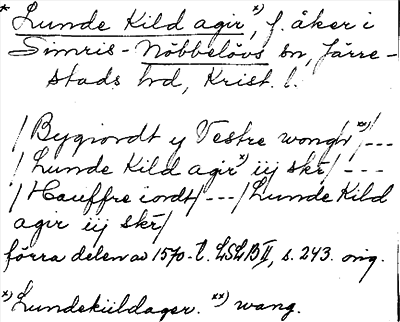 * Lunde Kild agir, *) f. åker i
Simris-Nöbbelövs sn, Järre-
stads hd, Krist. l.
/Bygiordt y Vestre wongh/ **) /---
/Lunde Kild agir *) iij skr/ ---
/Hauffre iordt/---/Lunde Kild
agir iij skr/
förra delen av 1570-t. LSLB II, s. 243. orig.
*) Lundekiildager. **) wang.